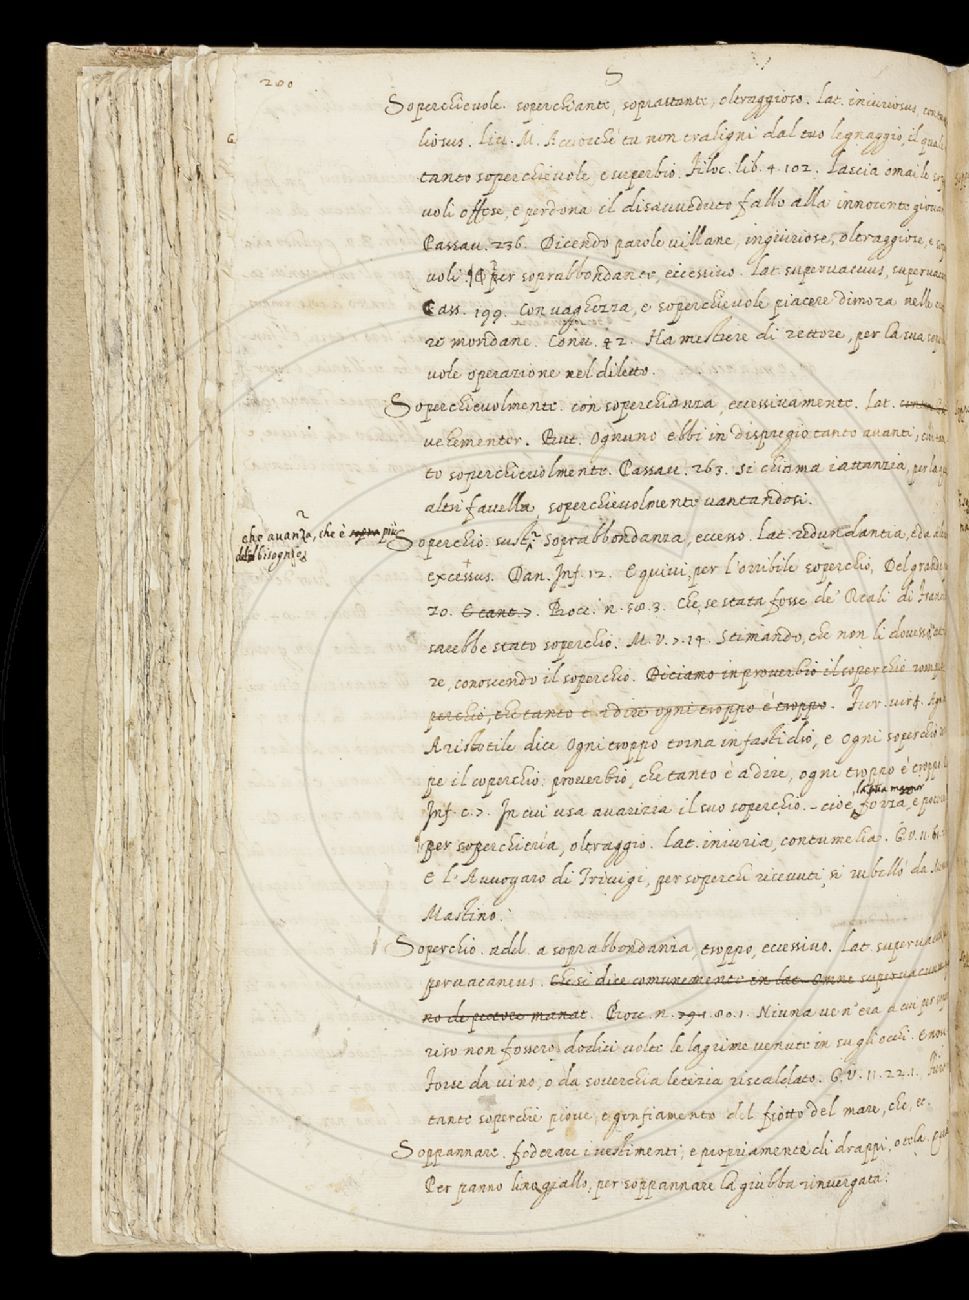 200
S
Soperchievole. soperchiante, soprastante, oltraggioso. Lat. iniuriosus, contu
liosus. Liv. M. Acciocchè tu non traligni dal tuo legnaggio, il quale
tanto soperchievole, e superbio. Filoc. lib. 4. 102. Lascia omai le
voli offese, e perdona il disavveduto fallo alla innocente giova
Passav. 236. Dicendo parole villane, ingiuriose, oltraggiose, e
voli. Per soprabbondante, eccessivo. Lat. supervacuus, superva
Cass. 199. Con vaghezza, e soperchievole piacere dimora nelle
re mondane. Conv. 42. Ha mestiere di rettore, per la sua
vole operazione nel diletto.
Soperchievolmente. con soperchianza, eccessivamente. Lat.
vehementer. Rut. Ognuno ebbi in dispregio tanto avanti,
to soperchievolmente. Passav. 263. Si chiama iattanzia, per la
altri favella, soperchievolmente vantandosi.
che avanza, che è sopra più
del bisogno
Soperchio. sust. soprabbondanza, eccesso. Lat. redundantia,
excessus. Dan. Inf. 12. E quivi, per l'orribile soperchio, Del
20. E cant. 7. Bocc. n. 58. 3. Che, se stata fosse de' Reali di
sarebbe stato soperchio. M. V. 7. 14. Stimando, che non li dovesse
re, conoscendo il soperchio. Diciamo in proverbio il soperchio rompe
perchio, che tanto è a dire ogni troppo è troppo. Fior. virt.
Aristotile dice Ogni troppo torna in fastidio, e Ogni soperchio
pe il coperchio. proverbio, che tanto è a dire, ogni troppo è troppo
la sua maggior
Inf. c. 7. In cui usa avarizia il suo soperchio. cioè, forza, e
per soperchieria, oltraggio. Lat. iniuria, contumelia. G. V. 11.
E l'Avvogaro di Trivigi, per soperchi ricevuti, si rubellò da
Mastino.
Soperchio. add. a soprabbondanza, troppo, eccessivo. Lat.
pervacaneus. Che si dice comunemente in lat. Omne supervacuum
no de pectore manat. Bocc. n. 80. 1. Niuna ve n'era a cui per
riso non fossero dodici volte le lagrime venute in su gli occhi. E
Forse da vino, o da soverchia letizia riscaldato. G. V. 11. 22. 1.
tante soperchie piove, e gonfiamento del fiotto del mare, che, ec.
Soppannare. foderare i vestimenti, e propriamente di drappi, o tela.
Per panno lino giallo, per soppannare la giubba rinvergata.